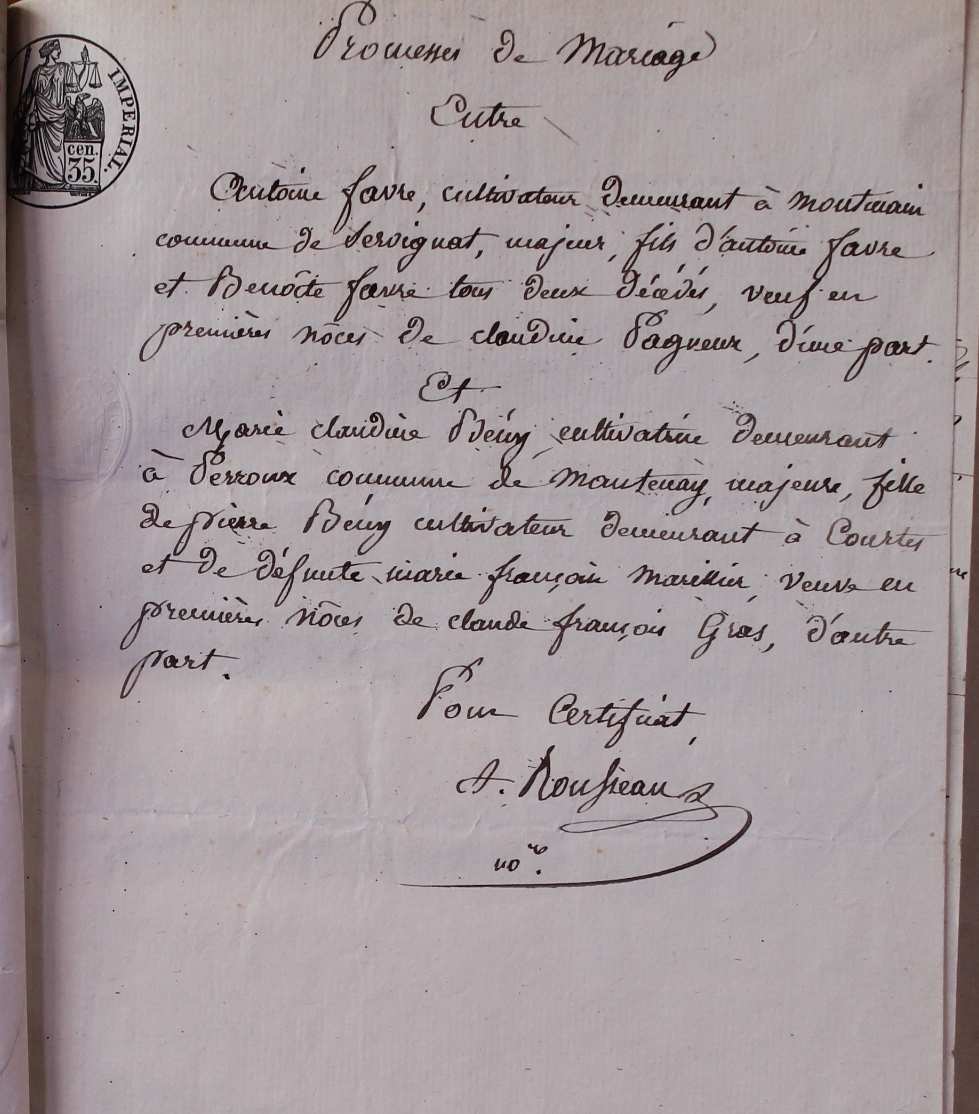 IMPERIAL.
cen.
35.
Promesses de Mariage
Entre
Antoine favre, cultivateur demeurant à montmain
commune de Servignat, majeur, fils d'antoine favre
et Benoîte favre tous deux décédés, veuf en
premières nôces de claudine Pagneux, d'une part.
Et
Marie claudine Bény cultivatrice demeurant
à Perroux commune de Mantenay, majeure, fille
de pierre Bény cultivateur demeurant à Courtes
et de défunte marie françoise Marillier, veuve en
premières nôces de claude françois Gras, d'autre
part.
Pour Certificat,
Rousseau
no.re